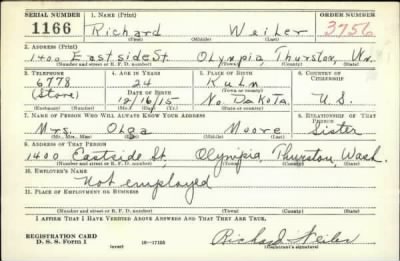 SERIAL NUMBER 1. NAME (Print) ORDER NUMBER
1166 Richard Weiler 3756
(First) (Middle) (Last)
2. ADDRESS (Print)
1400 Eastside St. Olympia, Thurston, Wn.
(Number and street or R. F. D. number) (Town) (County) (State)
3. TELEPHONE 4. AGE IN YEARS 5. PLACE OF BIRTH 6. COUNTRY OF CITIZENSHIP
6778 24 Kulm
DATE OF BIRTH (Town or county)
(Store) 12/16/15 No. Dakota. U.S.
(Exchange) (Number) (Mo.) (Day) (Yr.) (State or country)
7. NAME OF PERSON WHO WILL ALWAYS KNOW YOUR ADDRESS 8. RELATIONSHIP OF THAT PERSON
Mrs. Olga Moore Sister
(Mr., Mrs., Miss) (First) (Middle) (Last)
9. ADDRESS OF THAT PERSON
1400 Eastside St, Olympia, Thurston, Wash.
(Number and street or R. F. D. number) (Town) (County) (State)
10. EMPLOYER'S NAME
Not employed
11. PLACE OF EMPLOYMENT OR BUSINESS
(Number and street or R. F. D. number) (Town) (County) (State)
I AFFIRM THAT I HAVE VERIFIED ABOVE ANSWERS AND THAT THEY ARE TRUE.
REGISTRATION CARD
D. S. S. Form 1 (over) 16—17105 Richard Weiler
(Registrant's signature)